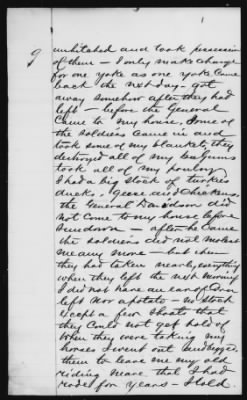 9
unhitched and took possession
of them – I only make charge
for one yoke as one yoke came
back the next day – got
away somehow after they had
left – before the General
Came to my house, Some of
the soldiers came in and
took some of my blankets, they
destroyed all of my bee Gums
took all of my honey
I had a big stock of turkies
ducks, Geese and Chickens,
the General Davidson did
not Come to my house before
Sundown – after he came
the soldiers did not molest
me any more – but then
they had taken nearly everything
when they left the next morning
I did not have an ear of Corn
left Nor a potato – no stock
except a few Shoats that
they Could not get hold of
When they were taking my
horses I went out and begged
them to leave me my old
riding Mare that I had
rode for years – I told